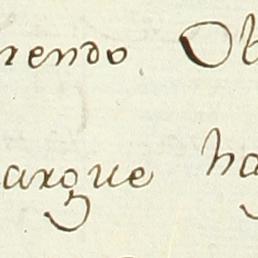 rendo Ob
argue hag